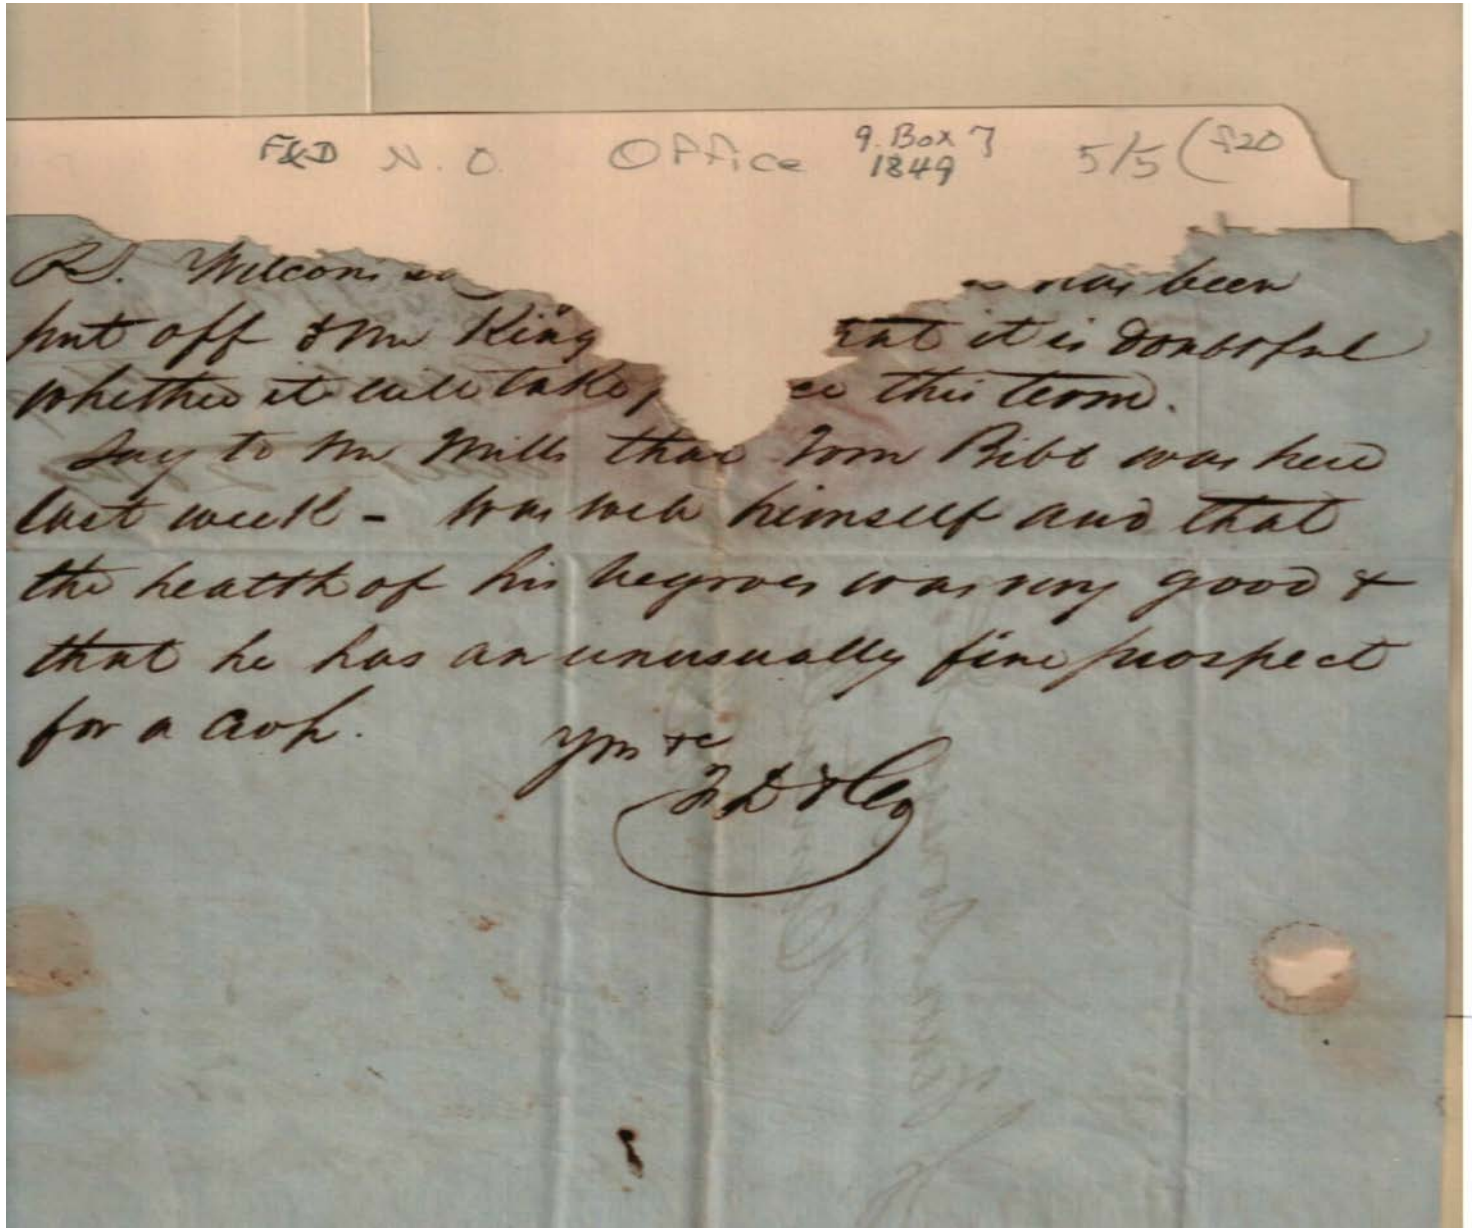 F&D N. O. Office 9. Box 7 1849 5/5 (f20
PS. Wilcox
has been
put off & Mr King
that it is doubtful
whether it will take
ce this term.
Say to Mr Mills that Tom Bibb was here
last week - was well himself and that
the health of his negroes was very good &
that he has an unusually fine prospect
for a crop.
Yrs &c
F D & Co